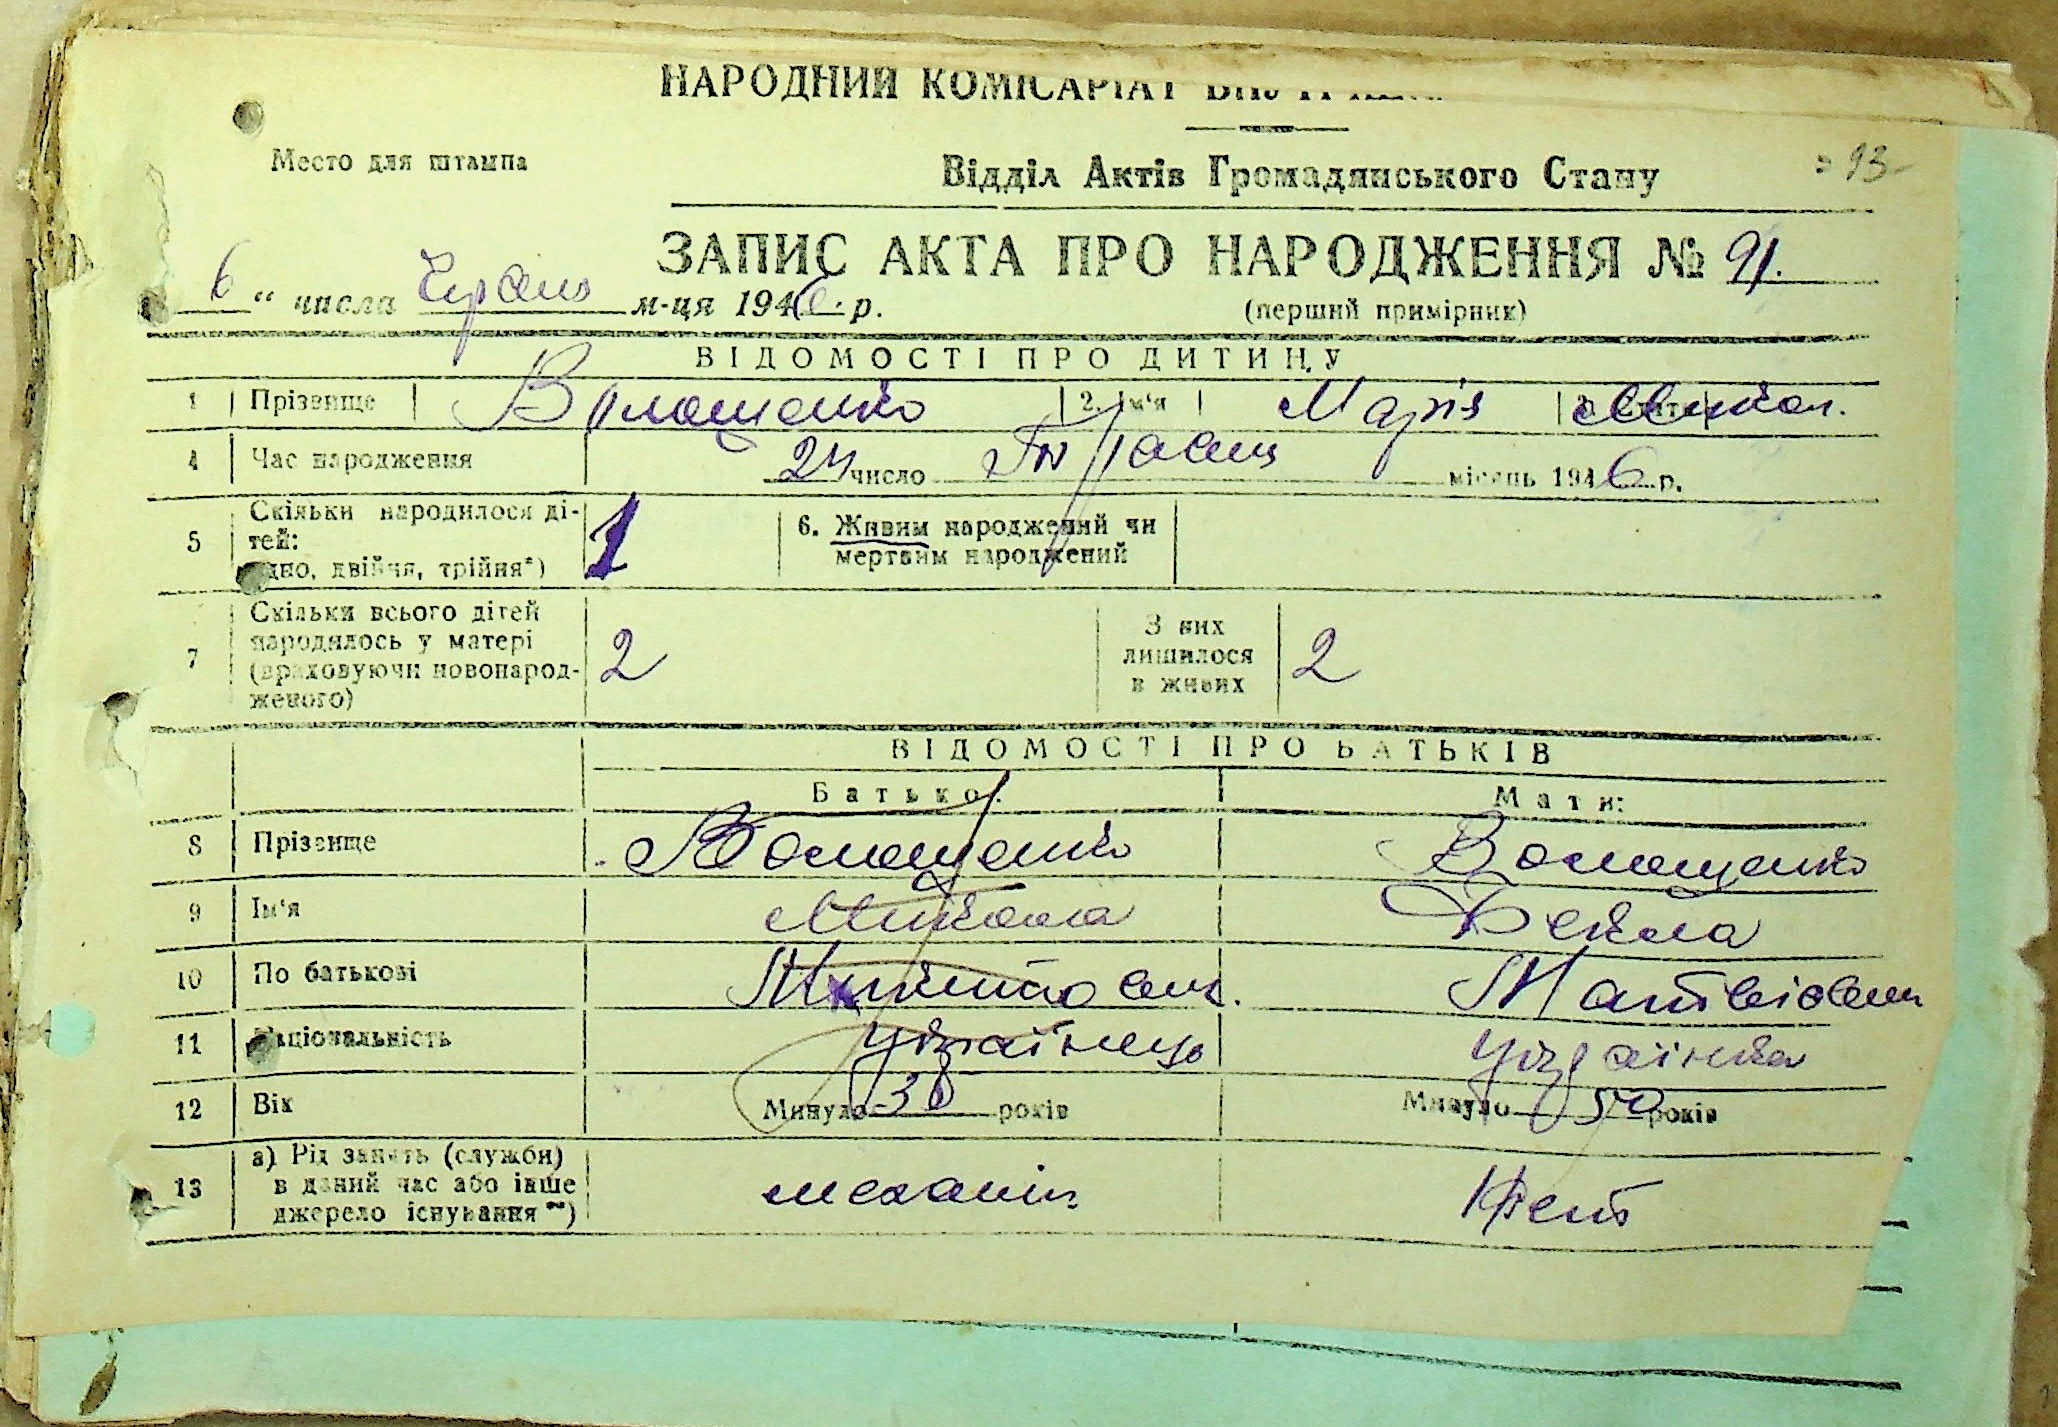 НАРОДНИЙ КОМІСАРІАТ
Место для штампа
Відділ Актів Громадянського Стану
93
ЗАПИС АКТА ПРО НАРОДЖЕННЯ № 91.
6 “ числа Червня м-ця 1946. р.
(перший примірник)
ВІДОМОСТІ ПРО ДИТИНУ
1 Прізвище Волощенко 2. Ім‘я Марія Микол.
4 Час народження 24 число Травня місяць 1946 р.
5 Скільки народилося ді-
тей:
одно, двійня, трійня*) 1
6. Живим народжений чи
мертвим народжений
7 Скільки всього дітей
народилось у матері
(враховуючи новонарод-
женого) 2
З них
лишилося
в живих 2
ВІДОМОСТІ ПРО БАТЬКІВ
Батько: Мати:
8 Прізвище Волощенко Волощенко
9 Ім‘я Микола Фекла
10 По батькові Микитович. Матвіївна
11 Національність українець українка
12 Вік Минуло років Минуло років
13 а) Рід занять (служби)
в даний час або інше
джерело існування **) механік